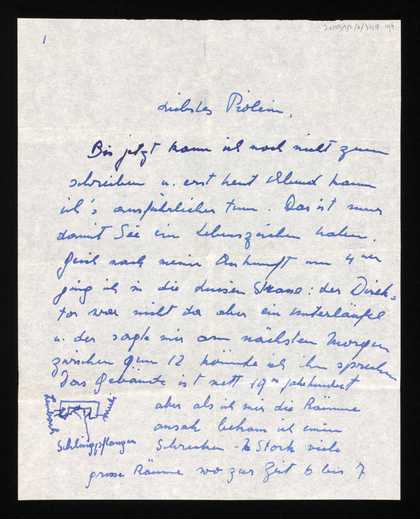 1
Liebstes Prolein,
Bis jetzt kam ich noch nicht zum
schreiben u. erst heut Abend kann
ich's ausführlicher tun. Das ist nur
damit Sie ein Lebenszeichen haben.
Gleich nach meiner Ankunft um 4 Uhr
ging ich in die : der Direk-
tor war nicht da aber ein Unterläufel
u. der sagte mir am nächsten Morgen
zwischen 9 um 12 könnte ich ihn sprechen
Das Gebäude ist nett 19tes Jahrhundert
aber als ich mir die Räume
ansah bekam ich einen
Schlingpflanzen
Schrecken - Stock viele
grosse Räume wo zur Zeit 6 bis 7